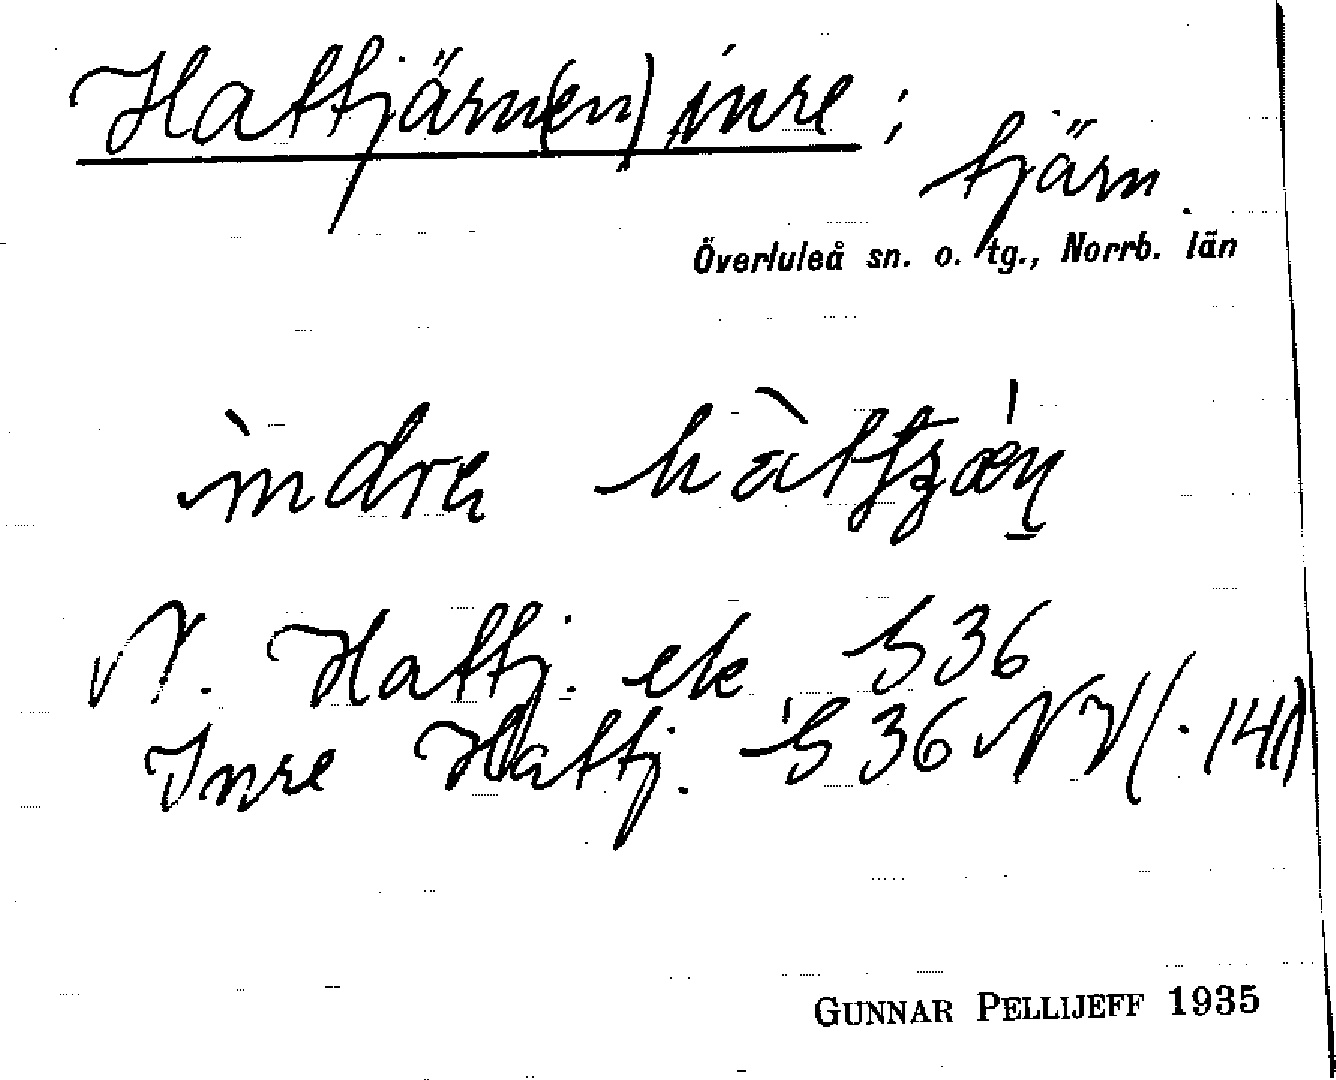 Hattjärn(en) inre ;
tjärn.
Överluleå sn. o. tg., Norrb. län
indra
N. Hattj. ek S36
Inre Hattj. S36 NV (
GUNNAR PELLIJEFF 1935